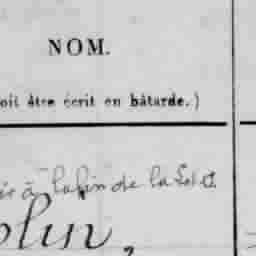 NOM.
oit être écrit en bâtarde.)
à la fin de la
olin,